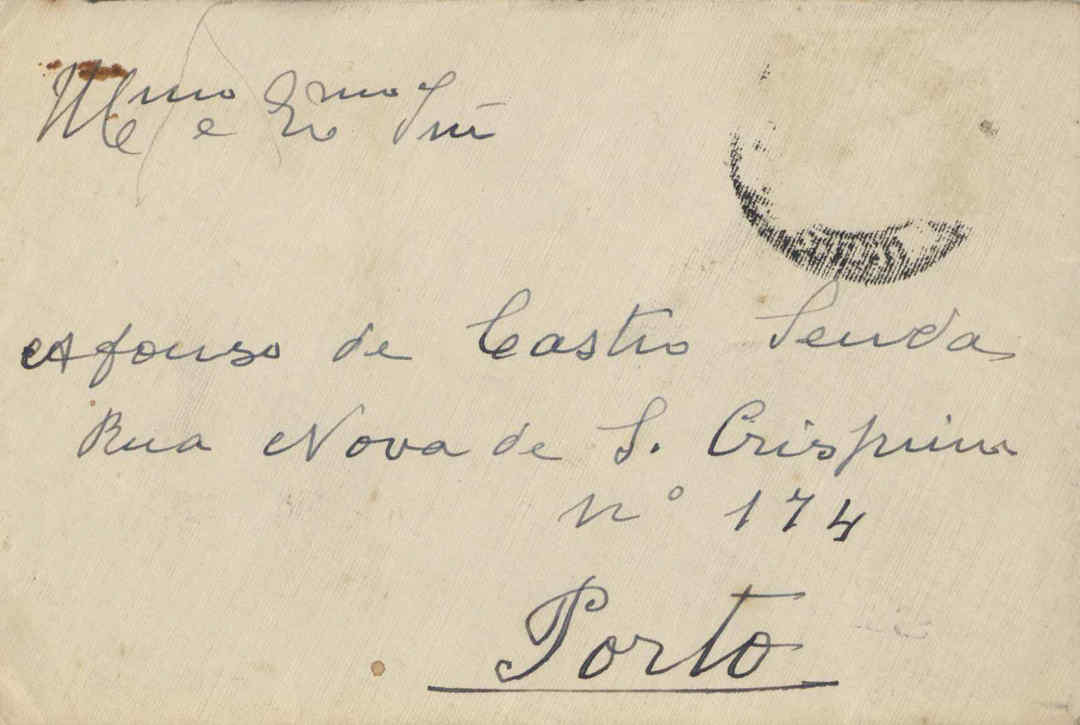 Illmo e Exmo Snr
Afonso de Castro Senda
Rua Nova de S. Crispim
nº 174
Porto